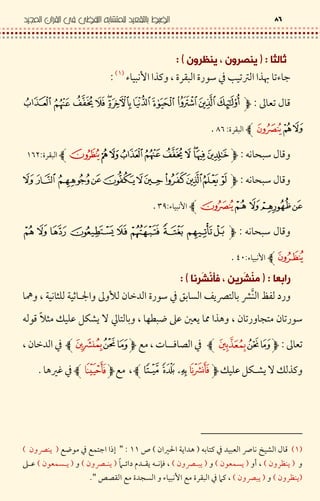 ٨٦
الضبط بالتقعيد للمتشابه اللفظي في القرآن المجيد
ثالثا : ( ينصرون ، ينظرون ) :
جاءتا بهذا الترتيب في سورة البقرة ، وكذا الأنبياء (١) :
قال تعالى : ﴿ أُوْلَٰٓئِكَ ٱلَّذِينَ ٱشْتَرَوُا۟ ٱلْحَيَوٰةَ ٱلدُّنْيَا بِٱلْءَاخِرَةِ فَلَا يُخَفَّفُ عَنْهُمُ ٱلْعَذَابُ
وَلَا هُمْ يُنصَرُونَ ﴾ البقرة: ٨٦ .
وقال سبحانه : ﴿ خَٰلِدِينَ فِيهَا لَا يُخَفَّفُ عَنْهُمُ ٱلْعَذَابُ وَلَا هُمْ يُنظَرُونَ ﴾ البقرة:١٦٢
وقال سبحانه : ﴿ لَوْ يَعْلَمُ ٱلَّذِينَ كَفَرُوا۟ حِينَ لَا يَكُفُّونَ عَن وُجُوهِهِمُ ٱلنَّارَ وَلَا
عَن ظُهُورِهِمْ وَلَا هُمْ يُنصَرُونَ ﴾ الأنبياء: ٣٩.
وقال سبحانه : ﴿ بَلْ تَأْتِيهِم بَغْتَةً فَتَبْهَتُهُمْ فَلَا يَسْتَطِيعُونَ رَدَّهَا وَلَا هُمْ
يُنظَرُونَ ﴾ الأنبياء: ٤٠ .
رابعا : ( منْشَرين ، فأنْشَرنا ) :
ورد لفظ النَّشر بالتصريف السابق في سورة الدخان للأولى والجـاثية للثانية ، وهما
سورتان متجاورتان ، وهذا مما يعين على ضبطها ، وبالتالي لا يشكل عليك مثلاً قوله
تعالى : ﴿ وَمَا نَحْنُ بِمُعَذَّبِينَ ﴾ في الصافـات ، مع ﴿ وَمَا نَحْنُ بِمُنشَرِينَ ﴾ في الدخان ،
وكذلك لا يشـكل عليك ﴿ فَأَنشَرْنَا بِهِۦ بَلْدَةً مَّيْتًا ﴾ ، مع ﴿ فَأَحْيَيْنَا ﴾ في غيرها .
(١) قال الشيخ ناصر العبيد في كتابه ( هداية الحيران ) ص ١١ : " إذا اجتمع في موضع ( ينصرون )
و ( ينظرون ) ، أو ( يسمعون ) و ( يبصرون ) ، فإنـه يقـدم دائـماً ( ينـصرون ) و ( يـسمعون ) عـلى
(ينظرون ) و ( يبصرون ) ، كما في البقرة مع الأنبياء و السجدة مع القصص ".